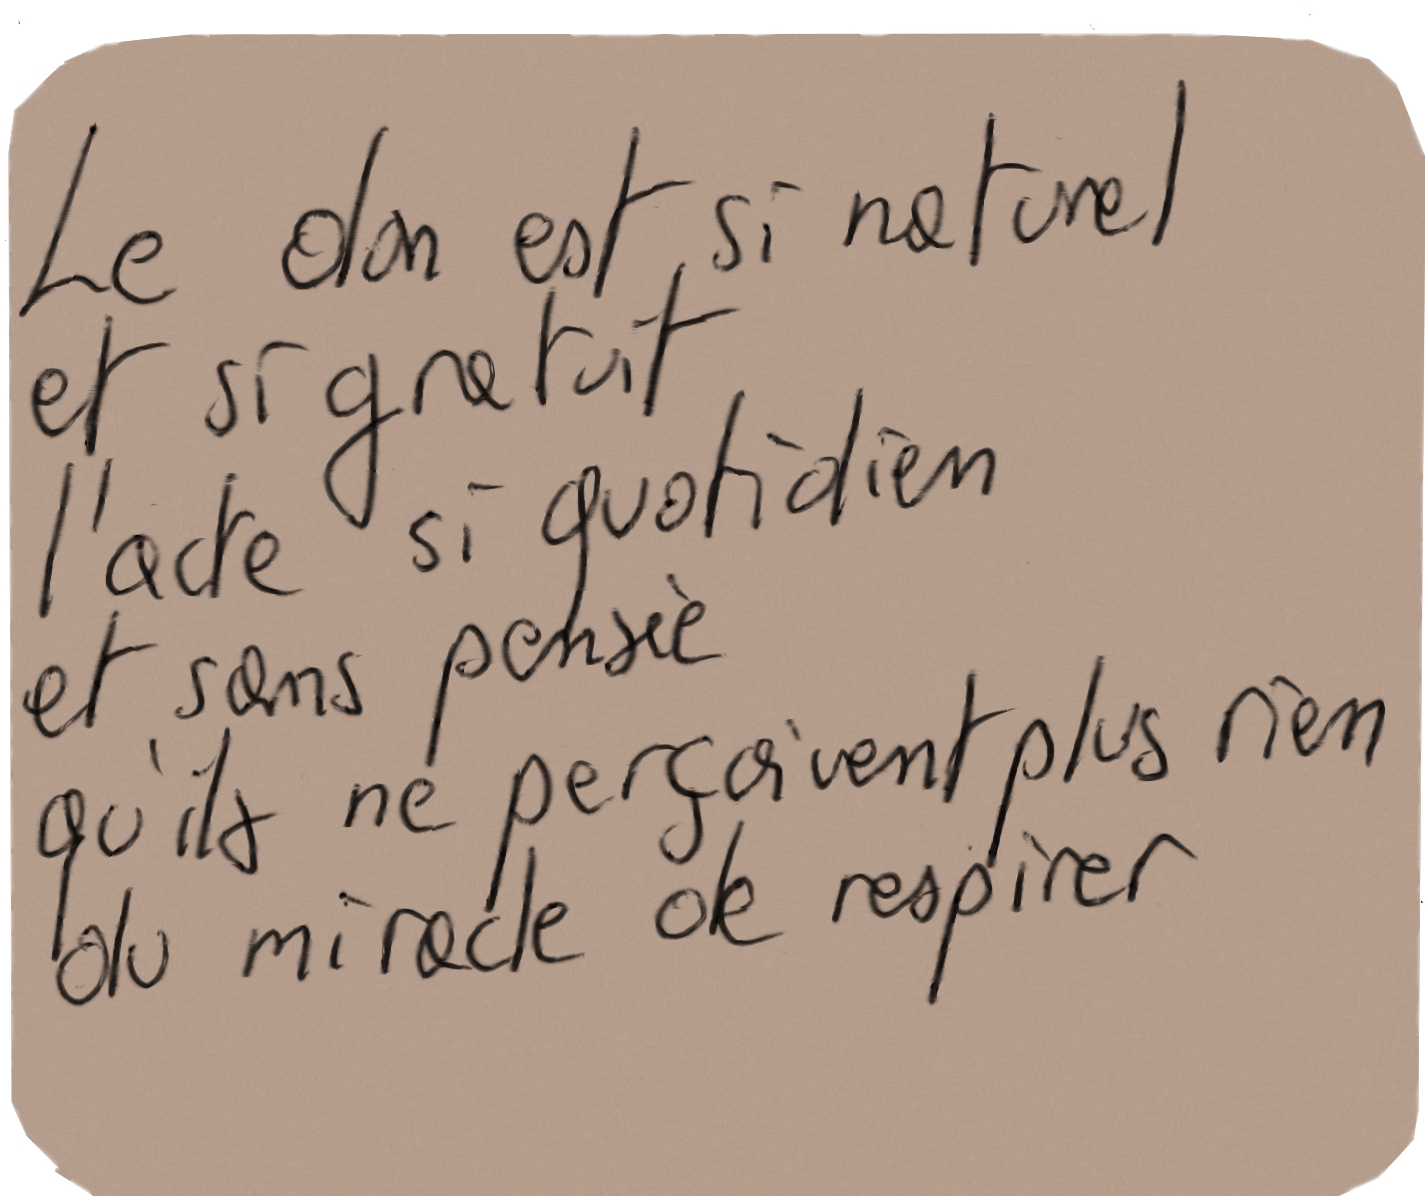 Le don est si naturel
et si gratuit
l'acte si quotidien
et sans pensée
qu'ils ne perçoivent plus rien
du miracle de respirer